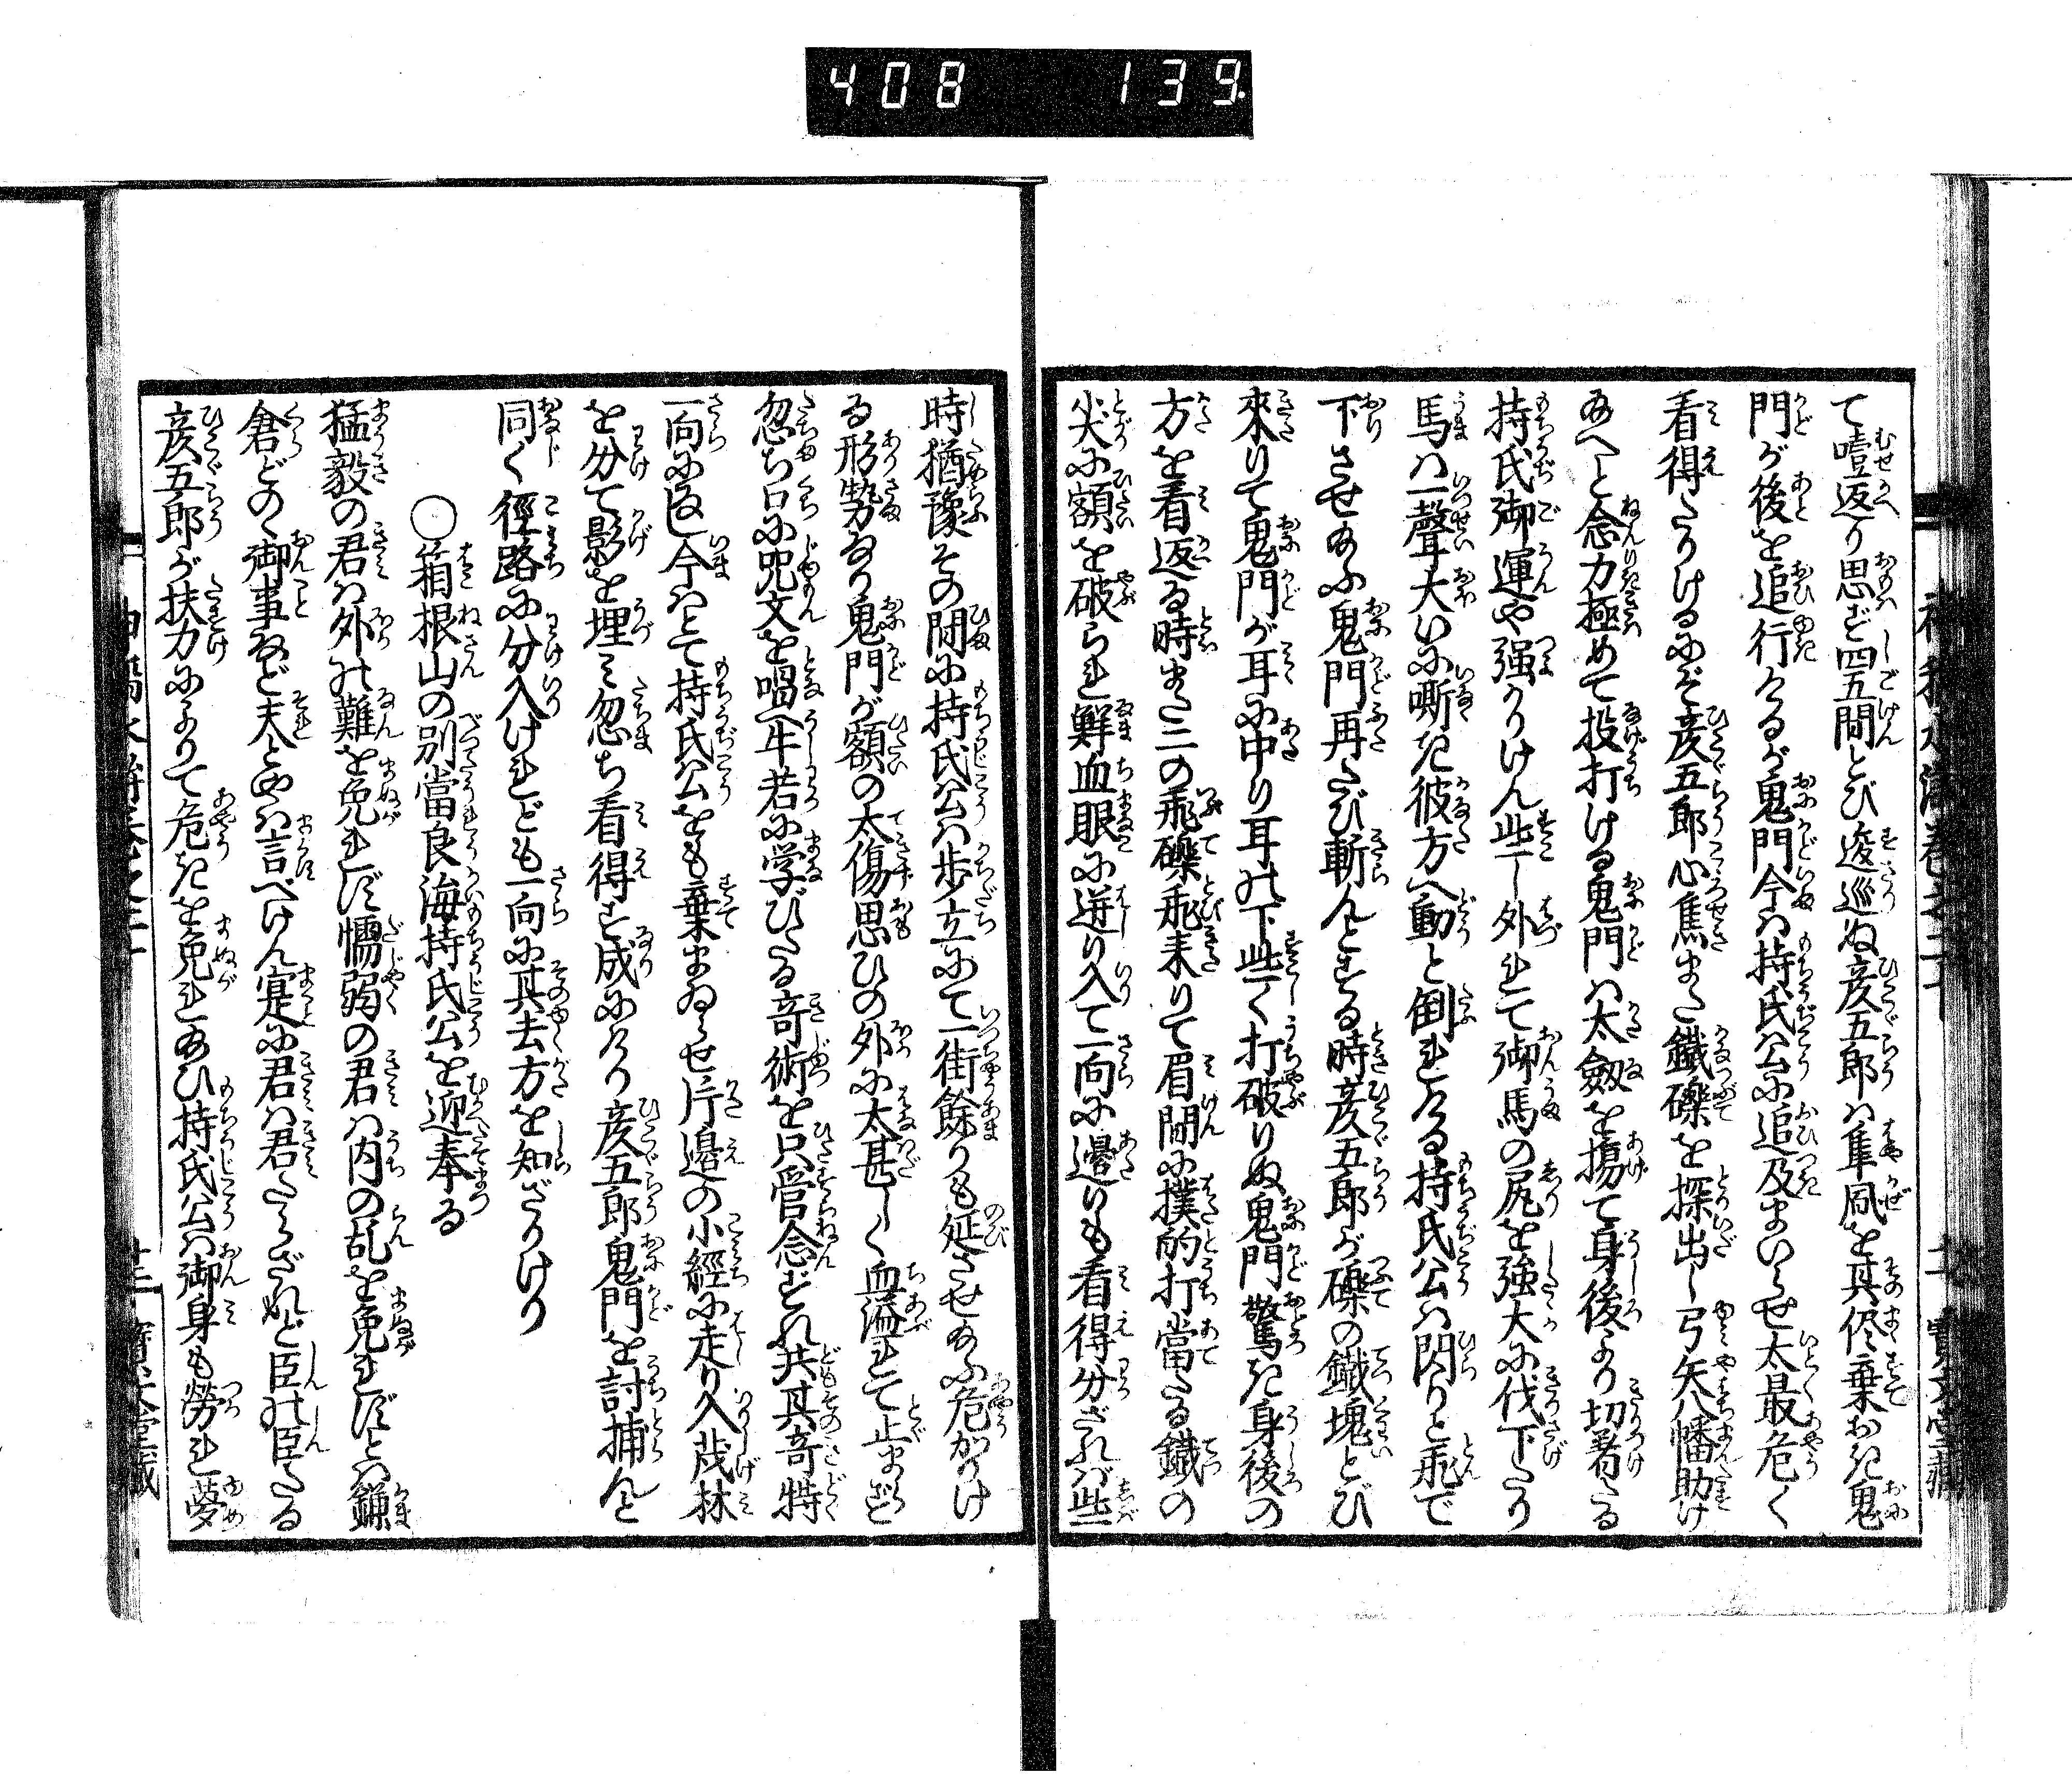 408 139
て噎返り思はず四五間とび逡巡ぬ彦五郎ハ隼風を其侭棄おき鬼
門が後を追行くるが鬼門今ハ持氏公に追及まいらせ太最危く
看得たりけるにぞ彦五郎心焦また鐵礫を探出し弓矢八幡助け
給へと念力極めて投打ける鬼門ハ太劔を揚て身後より切着たる
持氏御運や強かりけん些し外れて御馬の尻を強大に伐下たり
馬ハ一聲大いに嘶き彼方へ動と倒れたる持氏公ハ閃りと飛で
下させ給ふ鬼門再たび斬んとする時彦五郎が礫の鐵塊とび
來りて鬼門が耳に中り耳の下些く打破りぬ鬼門驚き身後の
方を看返る時また二の飛礫飛来りて眉間に撲的打當たる鐵の
尖に額を破られ鮮血眼に迸り入て一向に邊りも看得分ざれバ些
時猶豫その間に持氏公ハ歩立にて一街餘りも延させ給ふ危かりけ
る形勢なり鬼門が額の太傷思ひの外に太甚しく血溢れて止まらざ
忽ち口に咒文を唱へ牛若に学びたる奇術を只管念ずれ共其奇特
一向に返し今ハとて持氏公をも棄まゐらせ片邉の小經に走り入茂林
を分て影を埋ミ忽ち看得ず成にけり彦五郎鬼門を討捕んと
同く徑路に分入けれども一向に其去方を知ざりけり
○箱根山の別當良海持氏公を迎奉る
猛毅の君ハ外の難を免れず懦弱の君ハ内の乱を免れずとハ鎌
倉どのゝ御事など夫とや言べけん寔に君ハ君たらざれど臣の臣たる
彦五郎が扶力によりて危きを免れ給ひ持氏公ハ御身も勞れ夢